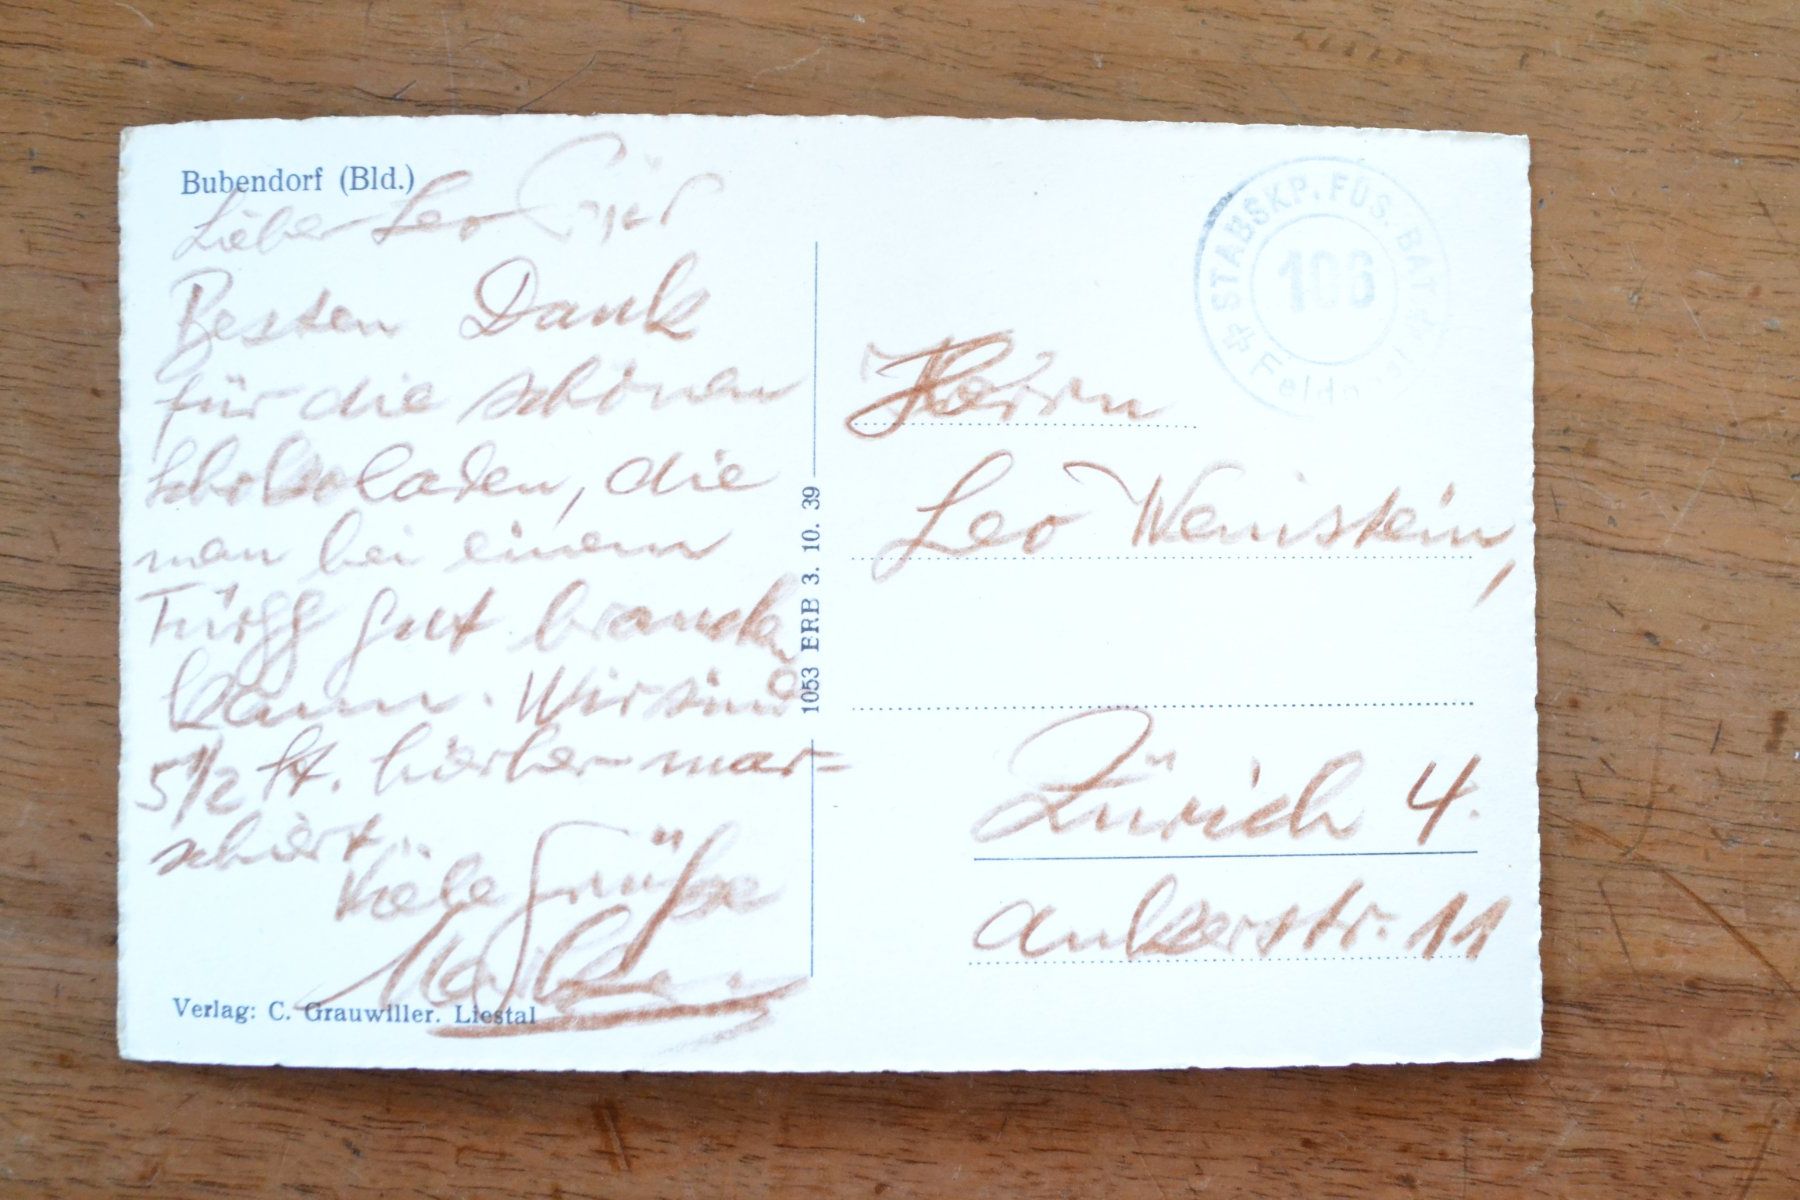 Bubendorf (Bld.)
Lieber Leo
Besten Dank
für die schönen
Schokoladen, die
man bei einem
Türgg gut brauchen
kann. Wir sind
5 1/2 St. hierher mar-
schiert.
Viele Grüße
Verlag: C. Grauwiller. Liestal
1053 ERB 3. 10. 39
STABSKP. FÜS. BAT.
106
Feldpost
Herrn
Leo Weinstein,
Zürich 4.
Ankerstr. 11